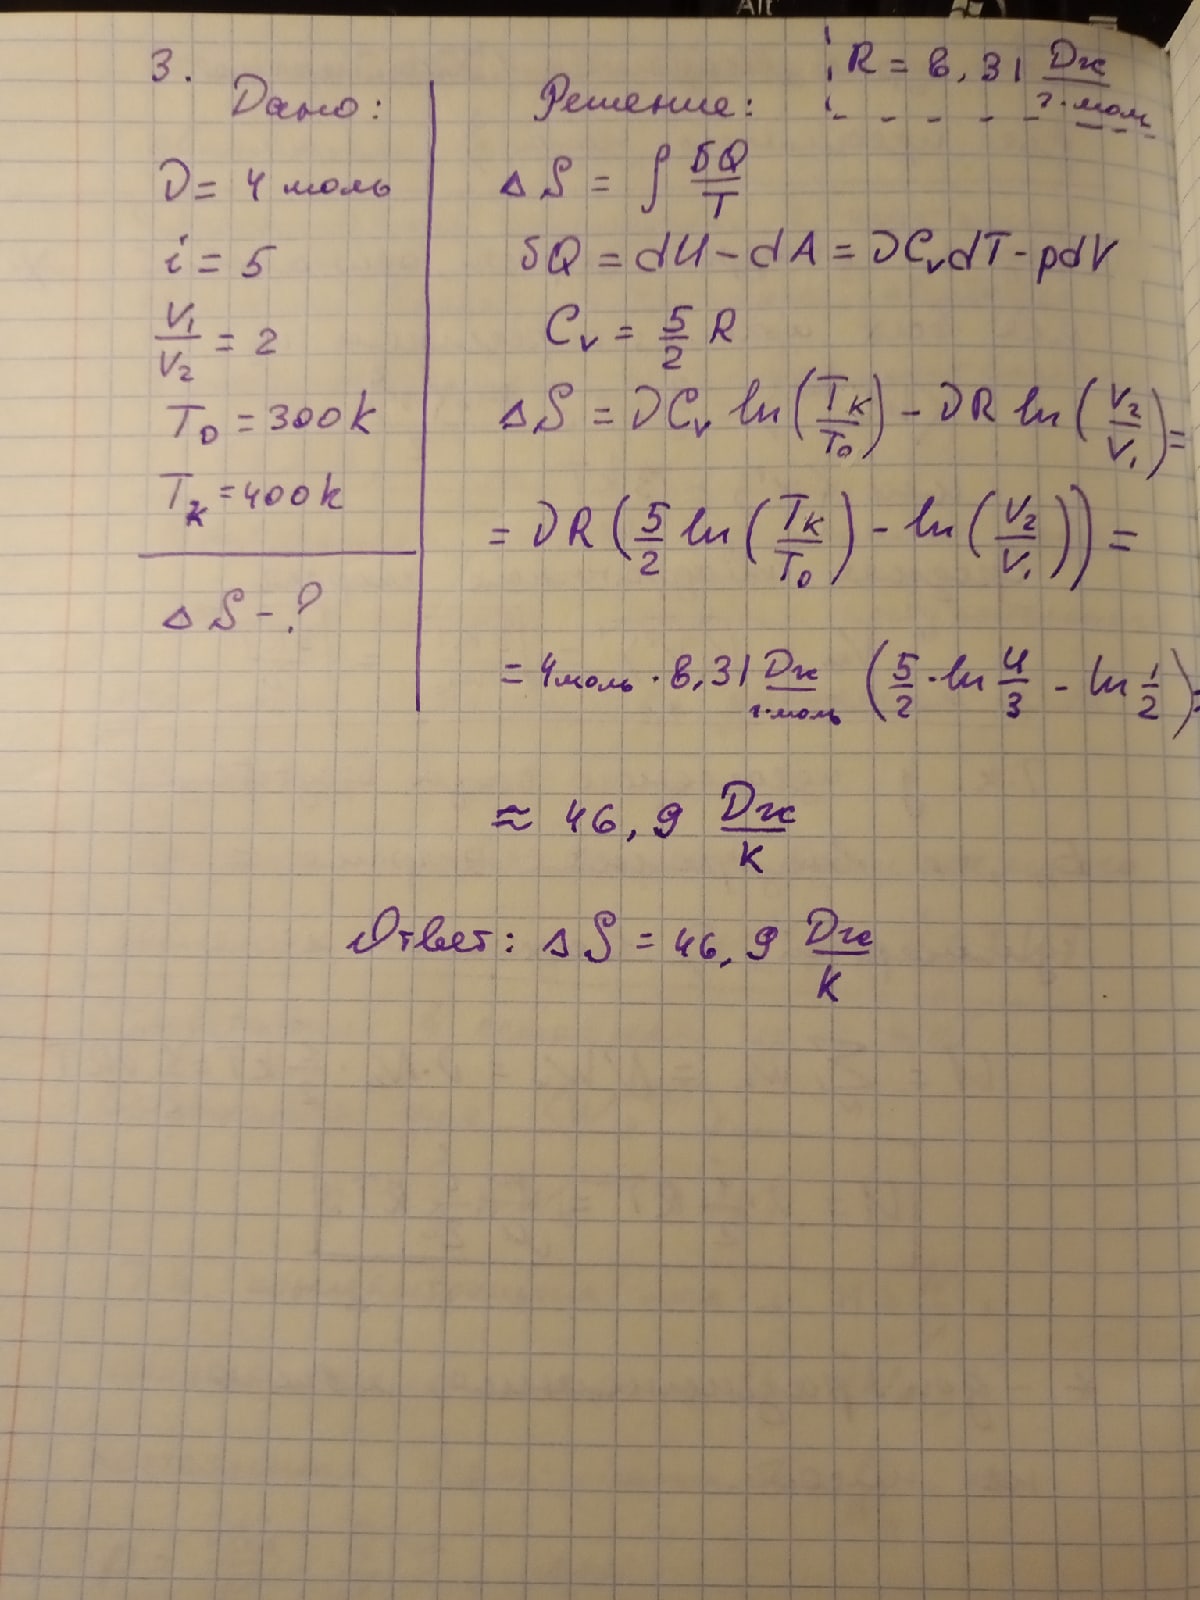 Alt
3.
Дано:
ν = 4 моль
i = 5
V₁/V₂ = 2
T₀ = 300k
Tₖ = 400k
ΔS - ?
R = 8,31 Дж/г·моль
Решение:
ΔS = ∫ δQ/T
δQ = dU - dA = νCᵥdT - pdV
Cᵥ = 5/2 R
ΔS = νCᵥ ln(Tₖ/T₀) - νR ln(V₂/V₁) =
= νR(5/2 ln(Tₖ/T₀) - ln(V₂/V₁)) =
= 4моль · 8,31 Дж/г·моль (5/2 · ln 4/3 - ln 1/2) =
≈ 46,9 Дж/K
Ответ: ΔS = 46,9 Дж/K